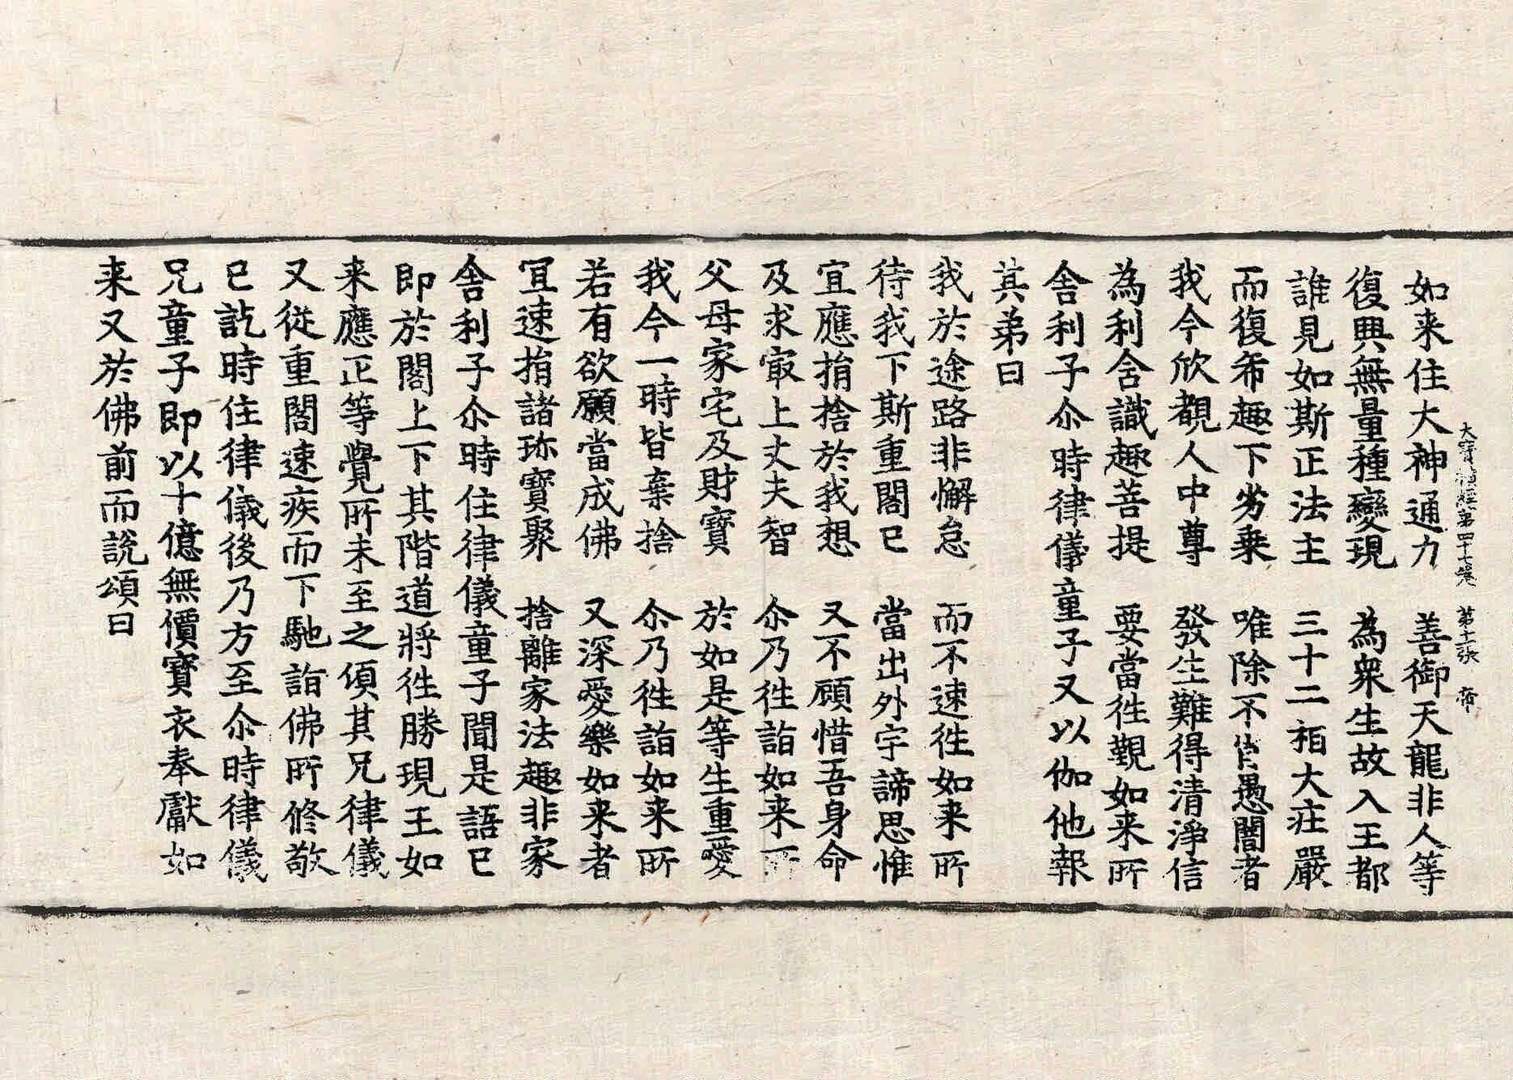 大寶積經第四十七卷 第十一張 帝
如来住大神通力 善御天龍非人等
復興無量種變現 為衆生故入王都
誰見如斯正法主 三十二相大莊嚴
而復希趣下劣乗 唯除不肖愚闇者
我今欣覩人中尊 發生難得清淨信
為利含識趣菩提 要當徃覲如来所
舎利子尒時律儀童子又以伽他報
其弟曰
我於途路非懈怠 而不速徃如来所
待我下斯重閣已 當出外宇諦思惟
宜應捐捨於我想 又不顧惜吾身命
及求㝡上丈夫智 尒乃徃詣如来所
父母家宅及財寶 於如是等生重愛
我今一時皆棄捨 尒乃徃詣如来所
若有欲願當成佛 又深愛樂如来者
冝速捐諸珎寶聚 捨離家法趣非家
舎利子尒時住律儀童子聞是語已
即於閣上下其階道將徃勝現王如
来應正等覺所未至之傾其兄律儀
又從重閣速疾而下馳詣佛所修敬
已訖時住律儀後乃方至尒時律儀
兄童子即以十億無價寶衣奉獻如
来又於佛前而說頌曰